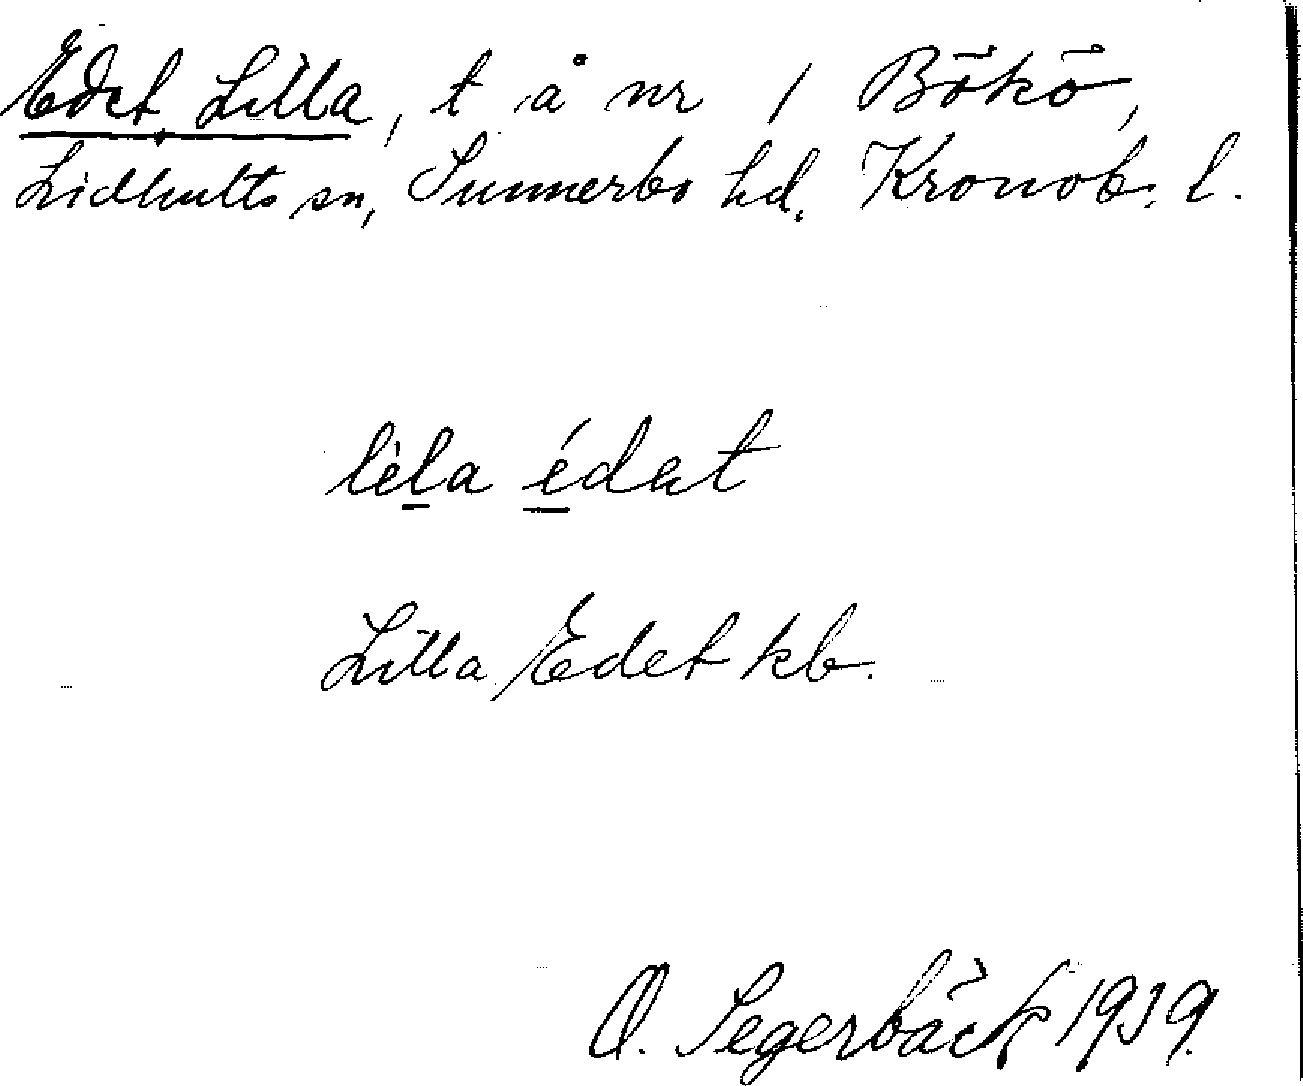 Edet, Lilla, t å nr 1 Bökö,
Lidhults sn, Sunnerbo hd, Kronob. l.
lèla édɐt
Lilla Edet kb.
O. Segerbäck 1939.